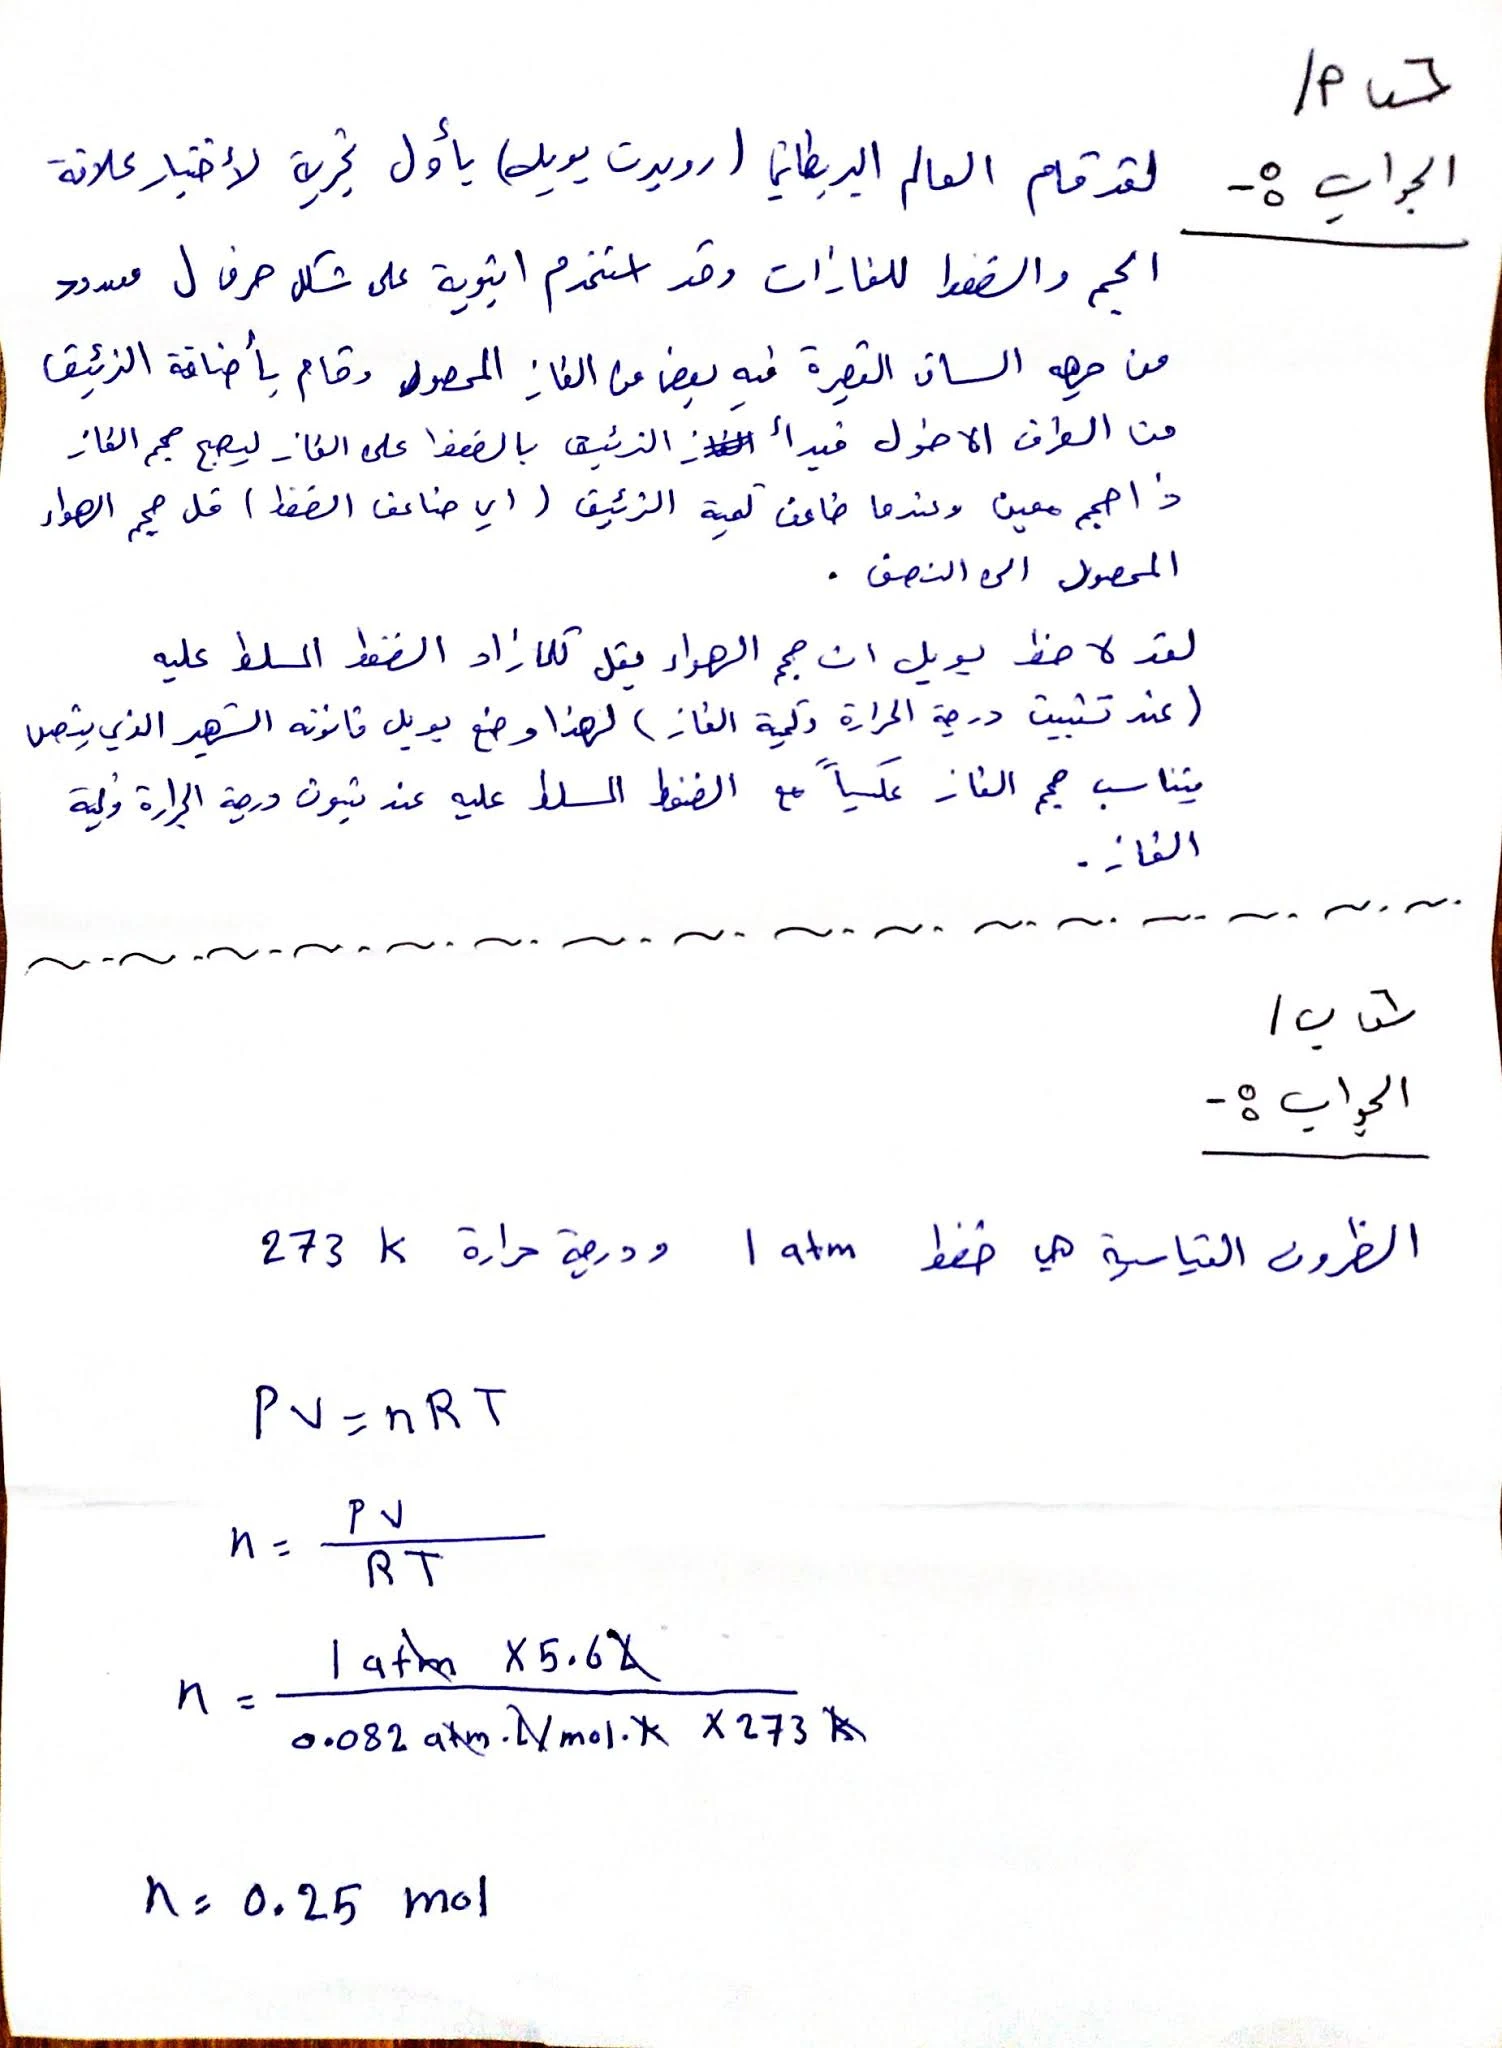 الجواب :-
لقد قام العالم البريطاني (روبرت بويل) بأول تجربة لأختبار علاقة
الحجم والضغط للغازات وقد استخدم انبوبة على شكل حرف ل مسدود
من جهه الساق القصيرة فيه بعض من الغاز المحصور وقام بأضافة الزئبق
من الطرف الاطول فبدأ الزئبق بالضغط على الغاز ليصبح حجم الغاز
ذا حجم معين وعندما ضاعف كمية الزئبق (اي ضاعف الضغط) قل حجم الهواء
المحصور الى النصف .
لقد لاحظ بويل ان حجم الهواء يقل كلما زاد الضغط المسلط عليه
(عند تثبيت درجة الحرارة وكمية الغاز) لهذا وضع بويل قانونه الشهير الذي ينص
يتناسب حجم الغاز عكسياً مع الضغط المسلط عليه عند ثبوت درجة الحرارة وكمية
الغاز .
الجواب :-
الظروف القياسية هي ضغط 1 atm ودرجة حرارة 273 K
PV = nRT
n = PV / RT
n = 1 atm X 5.6 L / 0.082 atm.L/mol.K X 273 K
n = 0.25 mol